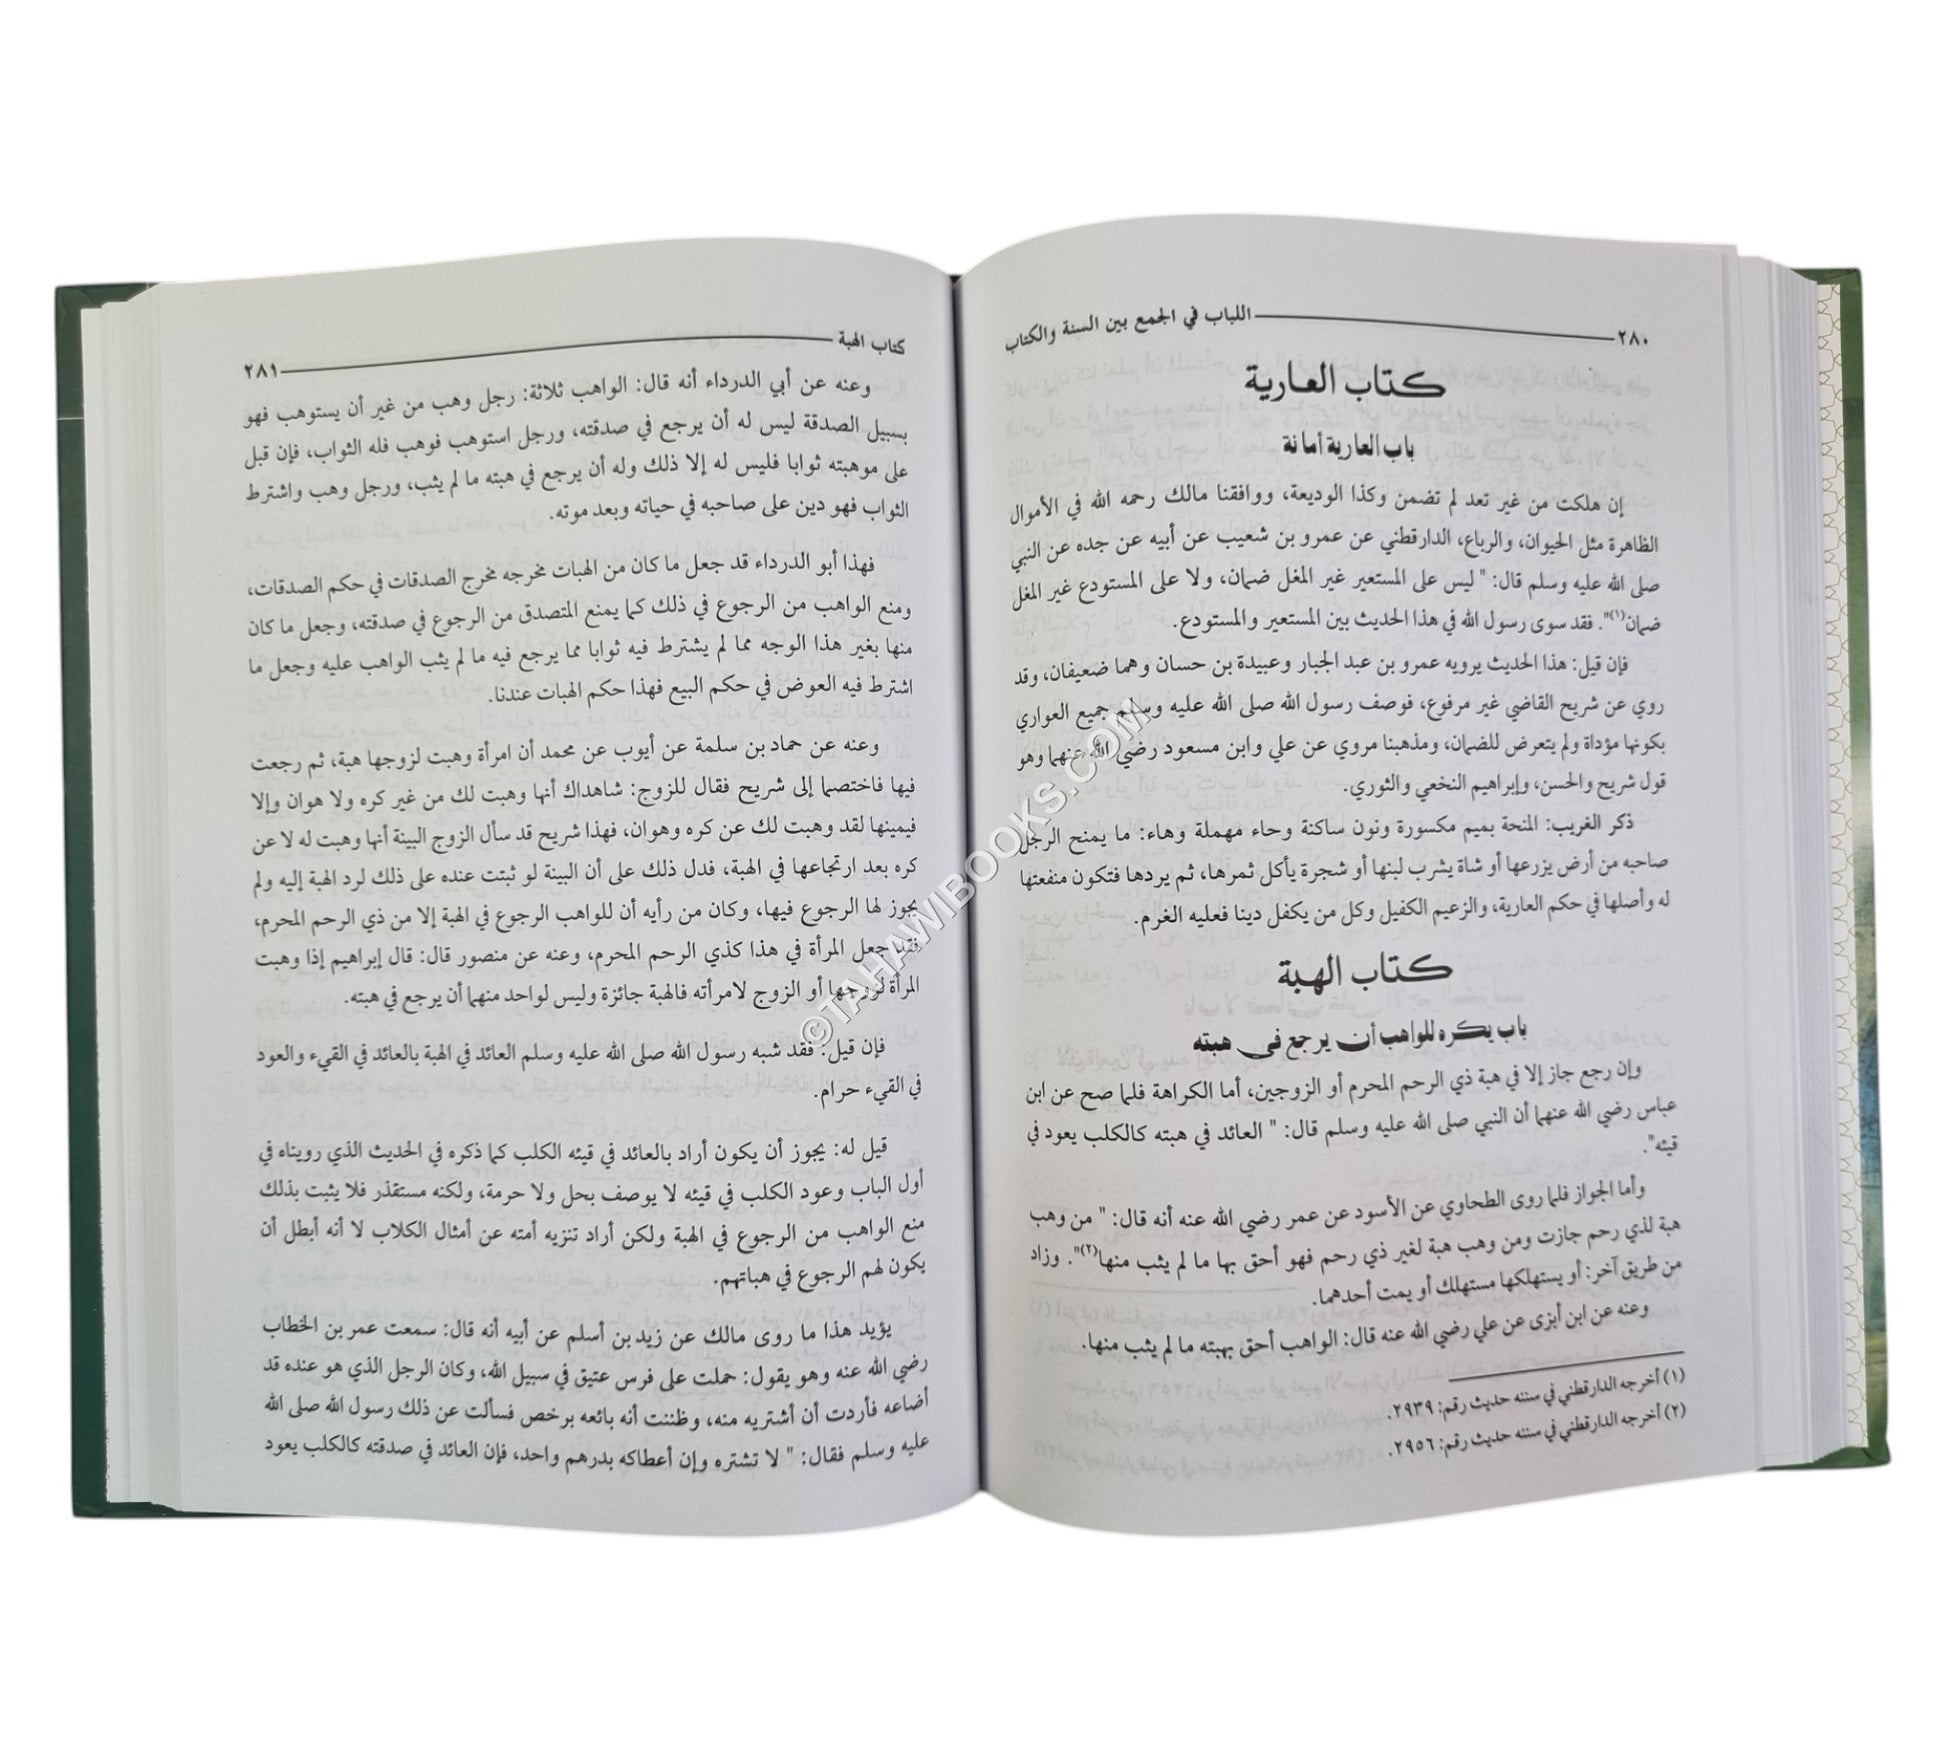 ٢٨٠ اللباب في الجمع بين السنة والكتاب
كتاب العارية
باب العارية أمانة
إن هلكت من غير تعد لم تضمن وكذا الوديعة، ووافقنا مالك رحمه الله في الأموال
الظاهرة مثل الحيوان، والرباع، الدارقطني عن عمرو بن شعيب عن أبيه عن جده عن النبي
صلى الله عليه وسلم قال: " ليس على المستعير غير المغل ضمان، ولا على المستودع غير المغل
ضمان(١)". فقد سوى رسول الله في هذا الحديث بين المستعير والمستودع.
فإن قيل: هذا الحديث يرويه عمرو بن عبد الجبار وعبيدة بن حسان وهما ضعيفان، وقد
روي عن شريح القاضي غير مرفوع، فوصف رسول الله صلى الله عليه وسلم جميع العواري
بكونها مؤداة ولم يتعرض للضمان، ومذهبنا مروي عن علي وابن مسعود رضي الله عنهما وهو
قول شريح والحسن، وإبراهيم النخعي والثوري.
ذكر الغريب: المنحة بميم مكسورة ونون ساكنة وحاء مهملة وهاء: ما يمنح الرجل
صاحبه من أرض يزرعها أو شاة يشرب لبنها أو شجرة يأكل ثمرها، ثم يردها فتكون منفعتها
له وأصلها في حكم العارية، والزعيم الكفيل وكل من يكفل دينا فعليه الغرم.
كتاب الهبة
باب يكره للواهب أن يرجع في هبته
وإن رجع جاز إلا في هبة ذي الرحم المحرم أو الزوجين، أما الكراهة فلما صح عن ابن
عباس رضي الله عنهما أن النبي صلى الله عليه وسلم قال: " العائد في هبته كالكلب يعود في
قيئه".
وأما الجواز فلما روى الطحاوي عن الأسود عن عمر رضي الله عنه أنه قال: " من وهب
هبة لذي رحم جازت ومن وهب هبة لغير ذي رحم فهو أحق بها ما لم يثب منها(٢)". وزاد
من طريق آخر: أو يستهلكها مستهلك أو يمت أحدهما.
وعنه عن ابن أبزى عن علي رضي الله عنه قال: الواهب أحق بهبته ما لم يثب منها.
(١) أخرجه الدارقطني في سننه حديث رقم: ٢٩٣٩.
(٢) أخرجه الدارقطني في سننه حديث رقم: ٢٩٥٦.
كتاب الهبة ٢٨١
وعنه عن أبي الدرداء أنه قال: الواهب ثلاثة: رجل وهب من غير أن يستوهب فهو
بسبيل الصدقة ليس له أن يرجع في صدقته، ورجل استوهب فوهب فله الثواب، فإن قبل
على موهبته ثوابا فليس له إلا ذلك وله أن يرجع في هبته ما لم يثب، ورجل وهب واشترط
الثواب فهو دين على صاحبه في حياته وبعد موته.
فهذا أبو الدرداء قد جعل ما كان من الهبات مخرجه مخرج الصدقات في حكم الصدقات،
ومنع الواهب من الرجوع في ذلك كما يمنع المتصدق من الرجوع في صدقته، وجعل ما كان
منها بغير هذا الوجه مما لم يشترط فيه ثوابا مما يرجع فيه ما لم يثب الواهب عليه وجعل ما
اشترط فيه العوض في حكم البيع فهذا حكم الهبات عندنا.
وعنه عن حماد بن سلمة عن أيوب عن محمد أن امرأة وهبت لزوجها هبة، ثم رجعت
فيها فاختصما إلى شريح فقال للزوج: شاهداك أنها وهبت لك من غير كره ولا هوان وإلا
فيمينها لقد وهبت لك عن كره وهوان، فهذا شريح قد سأل الزوج البينة أنها وهبت له لا عن
كره بعد ارتجاعها في الهبة، فدل ذلك على أن البينة لو ثبتت عنده على ذلك لرد الهبة إليه ولم
يجوز لها الرجوع فيها، وكان من رأيه أن للواهب الرجوع في الهبة إلا من ذي الرحم المحرم،
فقد جعل المرأة في هذا كذي الرحم المحرم، وعنه عن منصور قال: قال إبراهيم إذا وهبت
المرأة لزوجها أو الزوج لامرأته فالهبة جائزة وليس لواحد منهما أن يرجع في هبته.
فإن قيل: فقد شبه رسول الله صلى الله عليه وسلم العائد في الهبة بالعائد في القيء والعود
في القيء حرام.
قيل له: يجوز أن يكون أراد بالعائد في قيئه الكلب كما ذكره في الحديث الذي رويناه في
أول الباب وعود الكلب في قيئه لا يوصف بحل ولا حرمة، ولكنه مستقذر فلا يثبت بذلك
منع الواهب من الرجوع في الهبة ولكن أراد تنزيه أمته عن أمثال الكلاب لا أنه أبطل أن
يكون لهم الرجوع في هباتهم.
يؤيد هذا ما روى مالك عن زيد بن أسلم عن أبيه أنه قال: سمعت عمر بن الخطاب
رضي الله عنه وهو يقول: حملت على فرس عتيق في سبيل الله، وكان الرجل الذي هو عنده قد
أضاعه فأردت أن أشتريه منه، وظننت أنه بائعه برخص فسألت عن ذلك رسول الله صلى الله
عليه وسلم فقال: " لا تشتره وإن أعطاكه بدرهم واحد، فإن العائد في صدقته كالكلب يعود
©TAHAWIBOOKS.COM